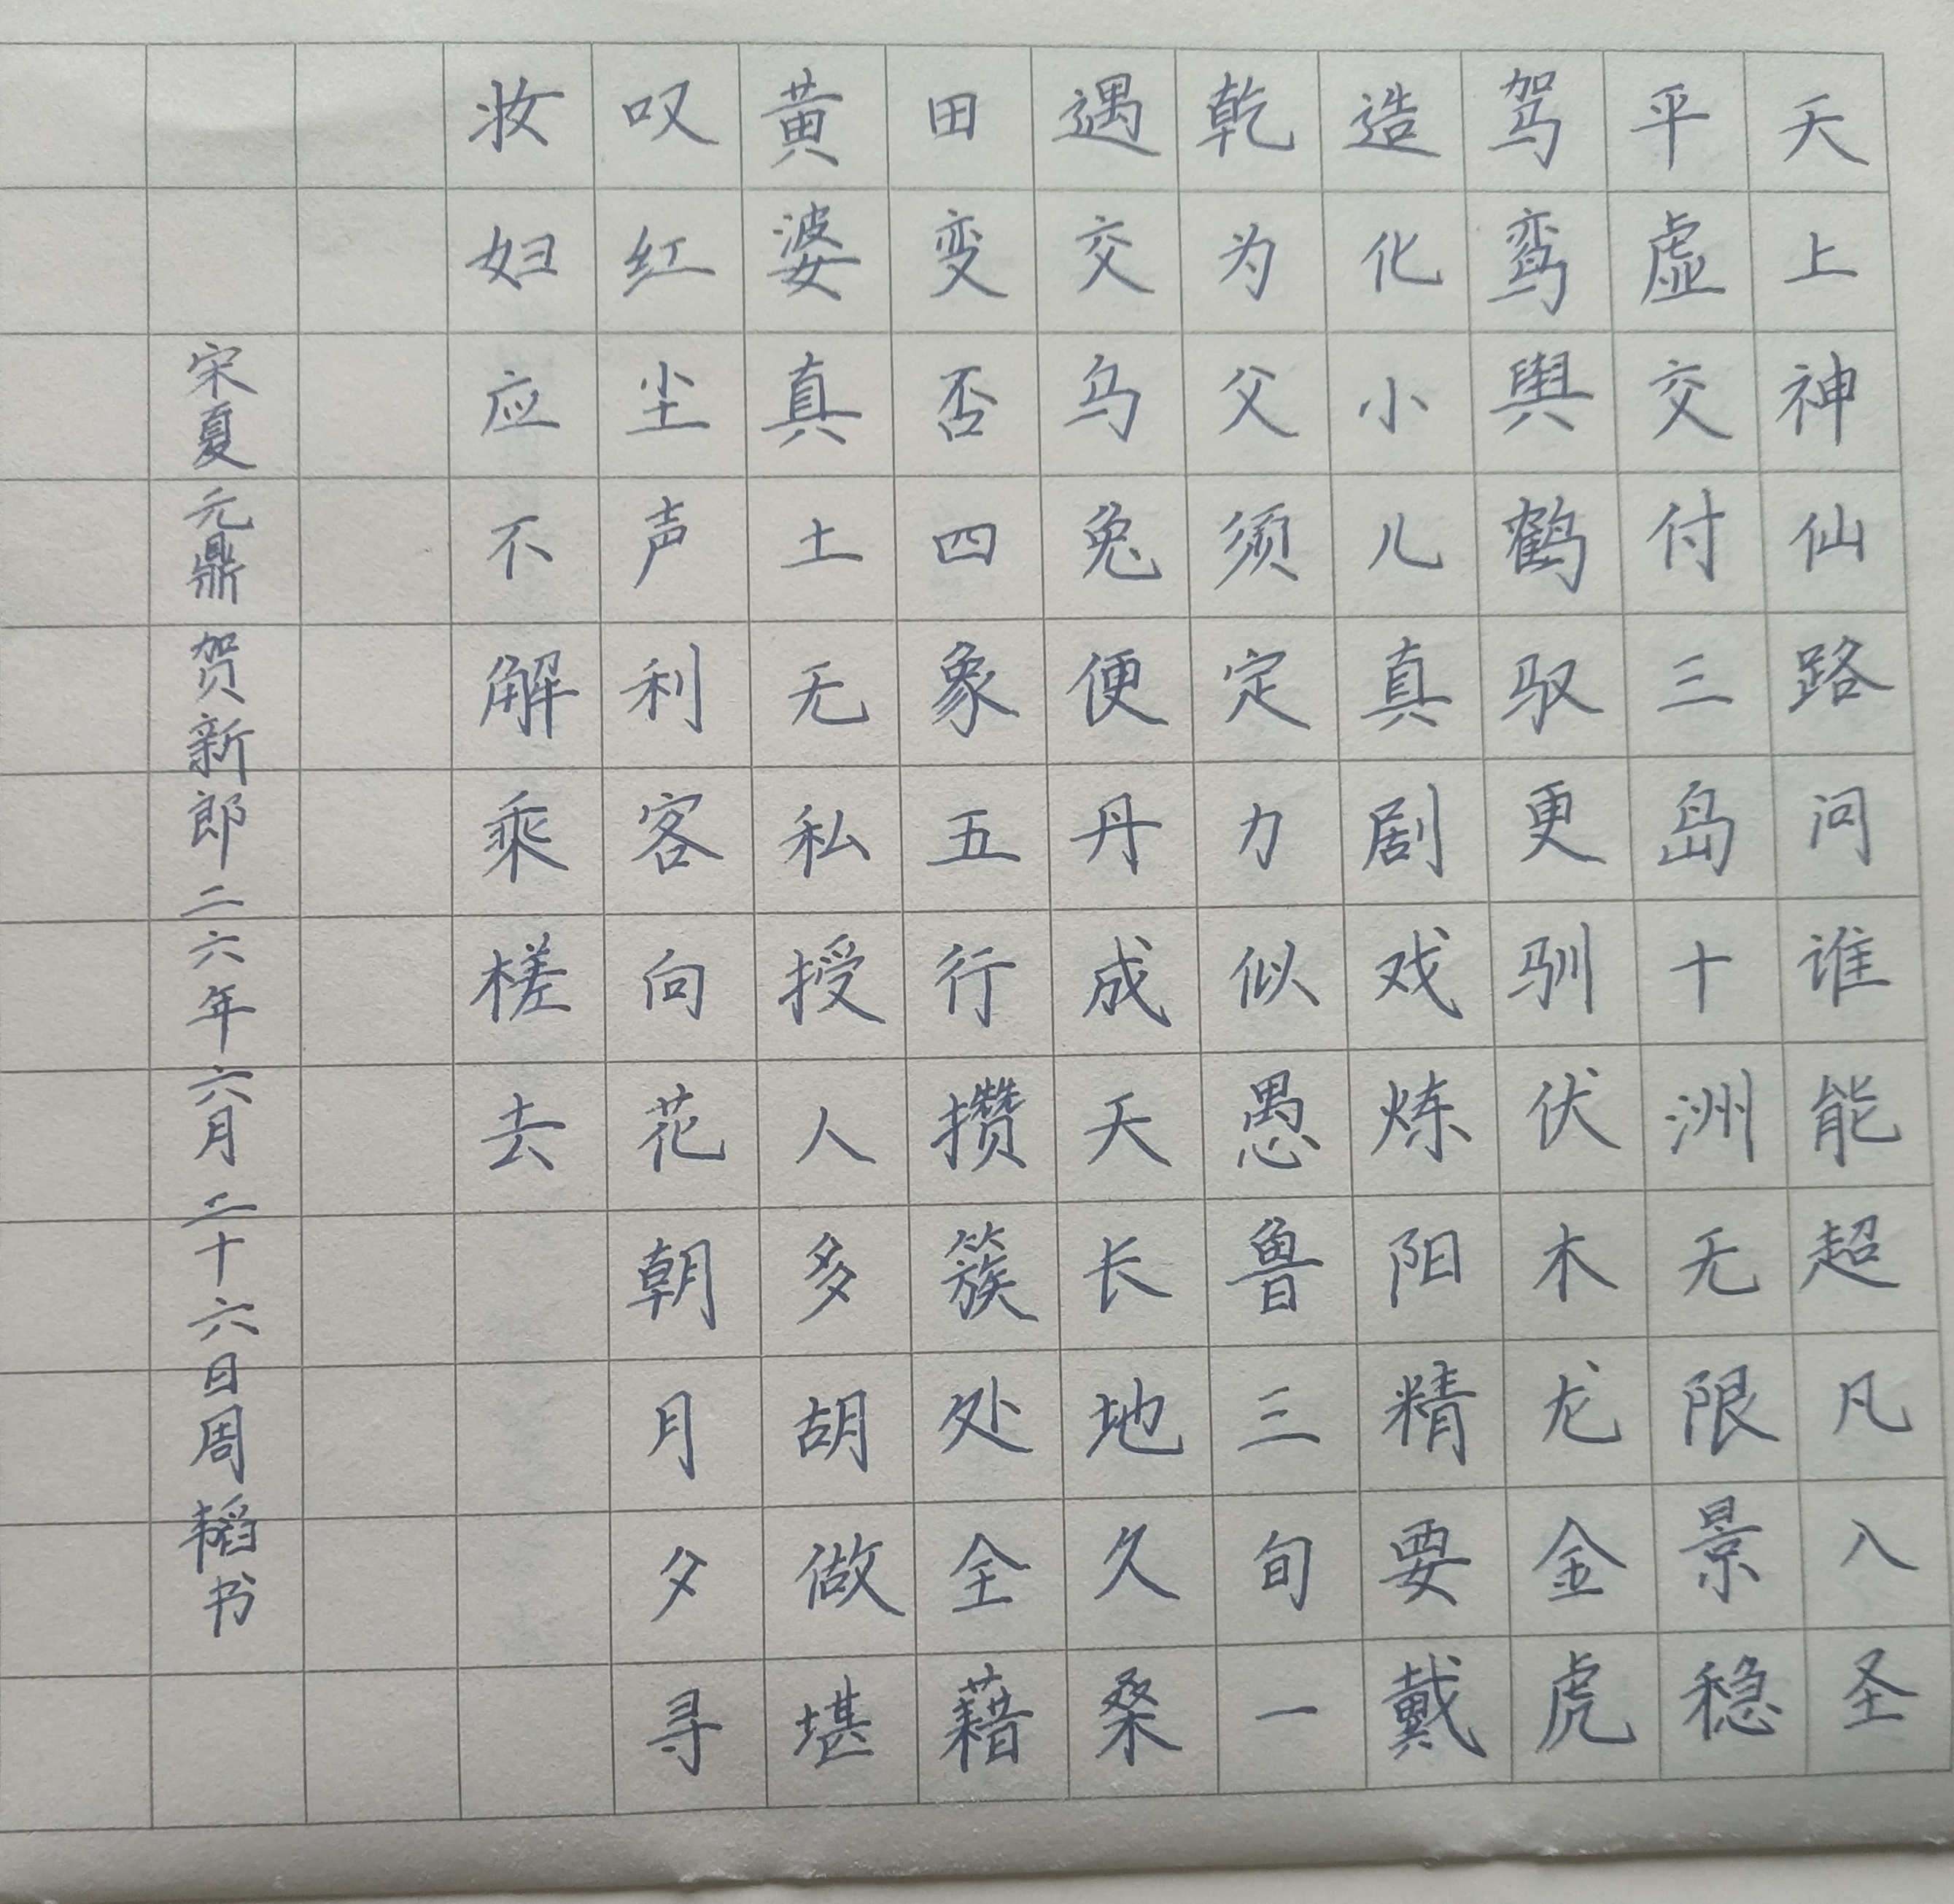 天上神仙路问谁能超凡入圣
平虚交付三岛十洲无限景稳
驾鸾舆鹤驭更驯伏木龙金虎
造化小儿真剧戏炼阳精要戴
乾为父须定力似愚鲁三旬一
遇交乌兔便丹成天长地久桑
田变否四象五行攒簇处全藉
黄婆真土无私授人多胡做堪
叹红尘声利客向花朝月夕寻
妆妇应不解乘槎去
宋夏元鼎贺新郎二六年六月二十六日周韬书